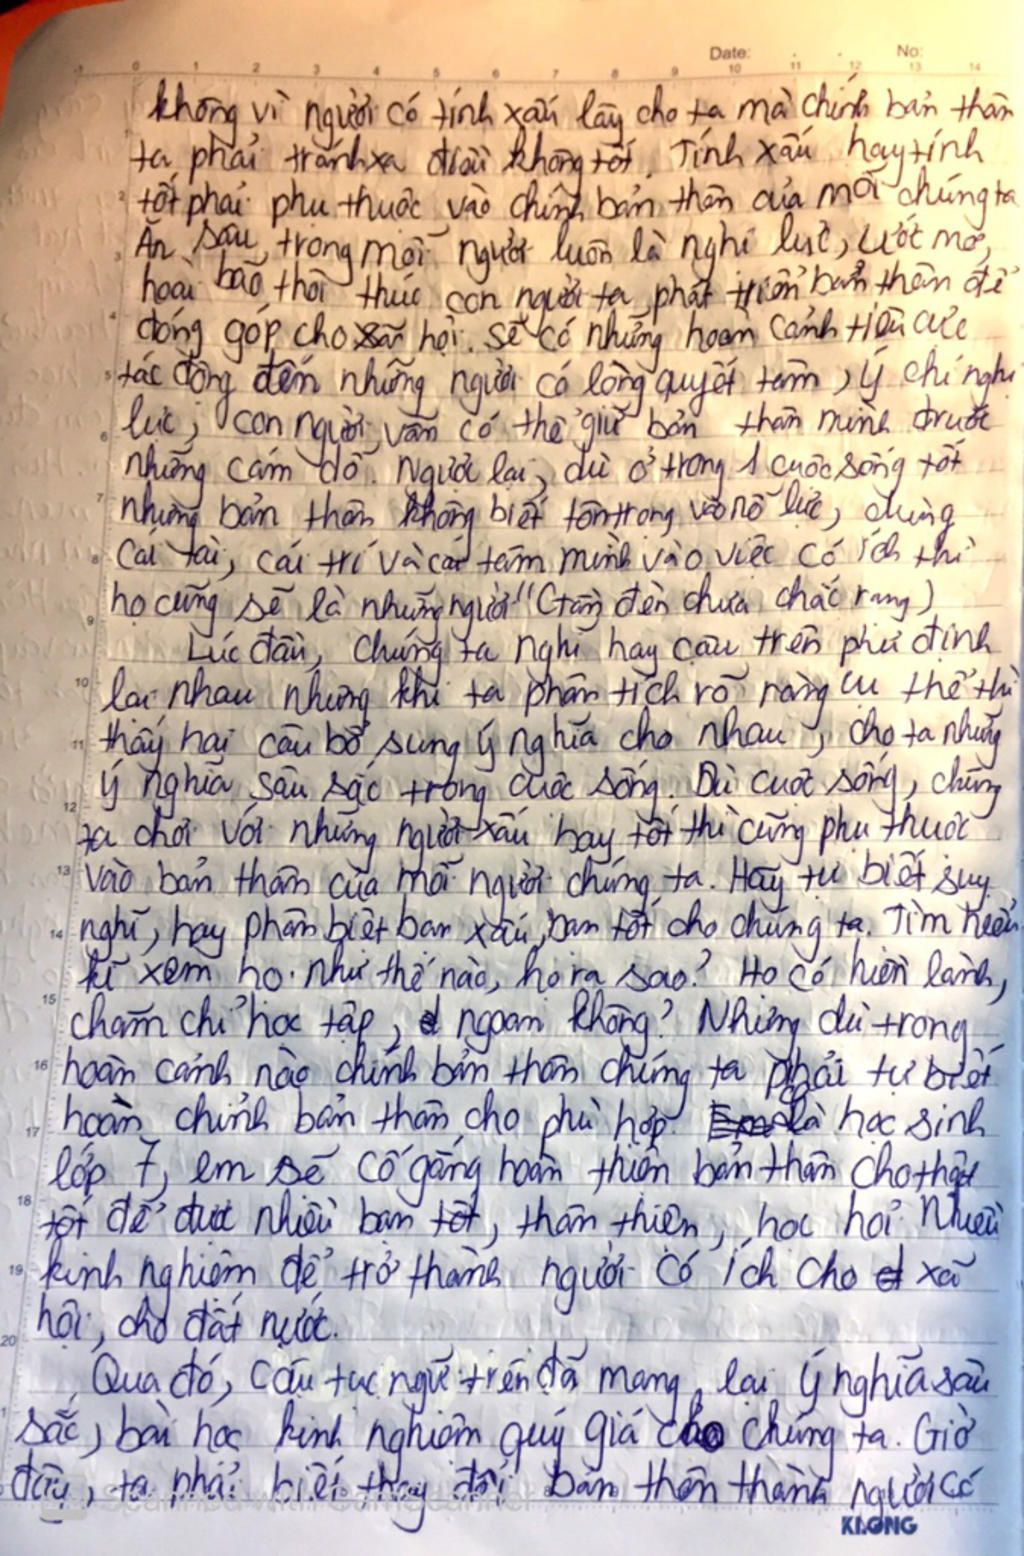 Date: No:
không vì người có tính xấu lây cho ta mà chính bản thân
ta phải tránh xa điều không tốt. Tính xấu hay tính
tốt phải phụ thuộc vào chính bản thân của mỗi chúng ta
Ăn sâu trong mỗi người luôn là nghị lực, ước mơ,
hoài bão thôi thúc con người ta phát triển bản thân để
đóng góp cho xã hội. Sẽ có những hoàn cảnh tiêu cực
tác động đến những người có lòng quyết tâm, ý chí nghị
lực, con người vẫn có thể giữ bản thân mình trước
những cám dỗ. Ngược lại, dù ở trong 1 cuộc sống tốt
nhưng bản thân không biết tôn trọng và nỗ lực, dùng
cái tài, cái trí và cái tâm mình vào việc có ích thì
họ cũng sẽ là những người "(Gần đèn chưa chắc rạng)
Lúc đầu, chúng ta nghĩ hay câu trên phủ định
lại nhau nhưng khi ta phân tích rõ ràng cụ thể thì
thấy hai câu bổ sung ý nghĩa cho nhau, cho ta những
ý nghĩa sâu sắc trong cuộc sống. Dù cuộc sống, chúng
ta chơi với những người xấu hay tốt thì cũng phụ thuộc
vào bản thân của mỗi người chúng ta. Hãy tự biết suy
nghĩ, hay phân biệt bạn xấu, bạn tốt cho chúng ta. Tìm hiểu
kĩ xem họ như thế nào, họ ra sao? Họ có hiền lành,
chăm chỉ học tập, ngoan không? Nhưng dù trong
hoàn cảnh nào chính bản thân chúng ta phải tự biết
hoàn chỉnh bản thân cho phù hợp. Là học sinh
lớp 7, em sẽ cố gắng hoàn thiện bản thân cho thật
tốt để được nhiều bạn tốt, thân thiện, học hỏi nhiều
kinh nghiệm để trở thành người có ích cho xã
hội, cho đất nước.
Qua đó, câu tục ngữ trên đã mang lại ý nghĩa sâu
sắc, bài học kinh nghiệm quý giá cho chúng ta. Giờ
đây, ta phải biết thay đổi bản thân thành người có
KLONG